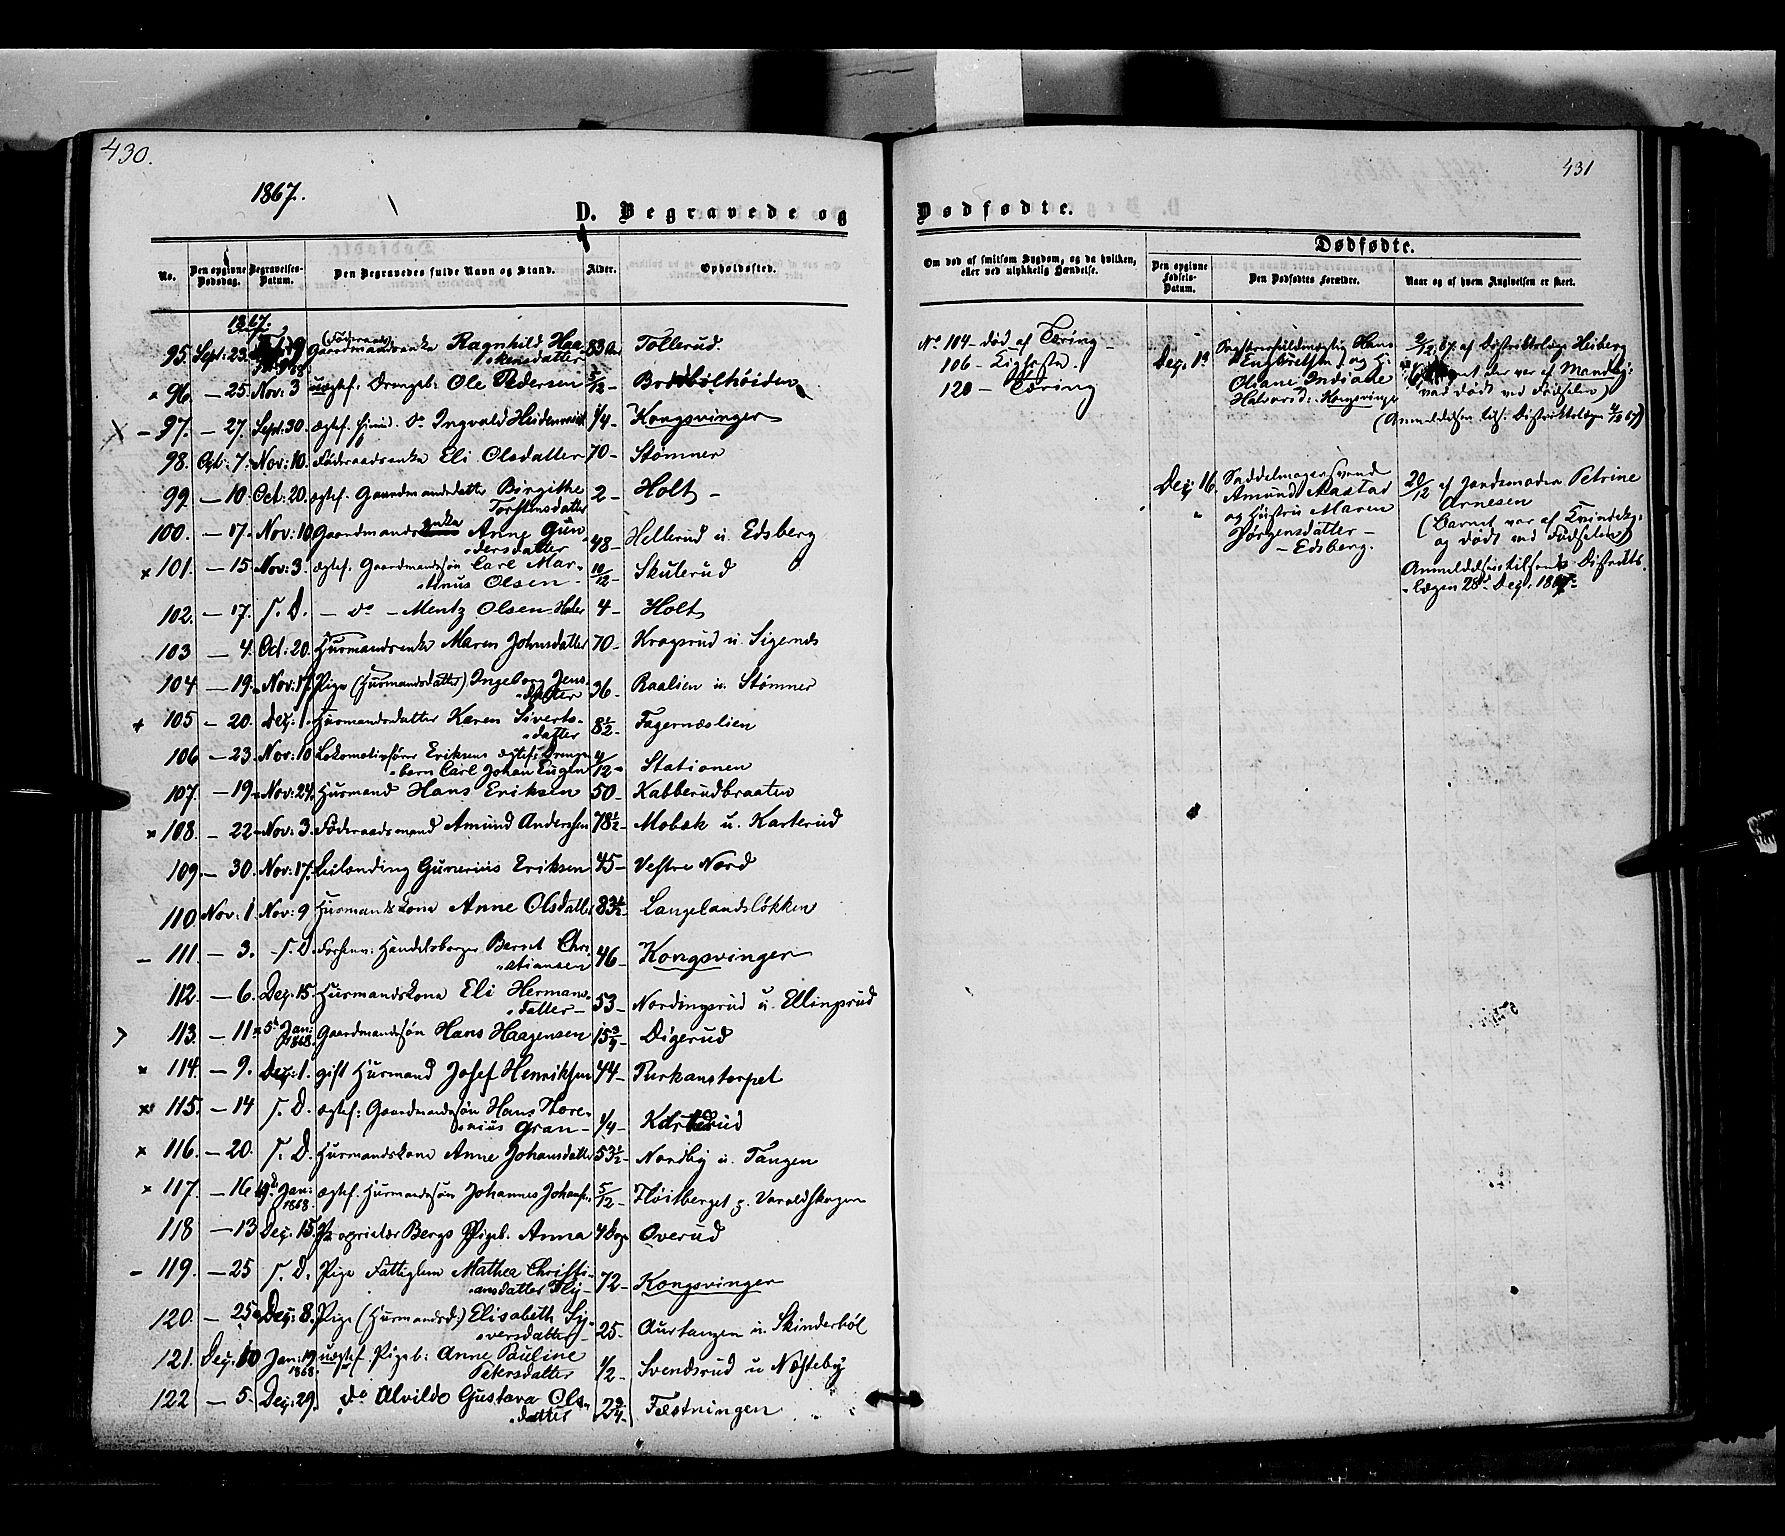 430.
1867.
D. Begravede og
No. Den opgivne Dødsdag. Begravelses-Datum. Den Begravedes fulde Navn og Stand. Alder. Opholdssted.
1867.
95. Sept: 23. (Föderaads) Gaardmandsenke Ragnhild Haa-
kensdatter 83 Aar Tollerud.
96. — 25. Nov: 3 uægtef. Drengeb: Ole Pedersen /12 Brødbølhøiden
97. — 27. Sept: 30. ægtef. do Ingvald Heidenreich 1/4 — Kongsvinger
98. Oct: 7. Nov: 10. Föderaadsenke Eli Olsdatter 70 — Stømner
99. — 10. Oct: 20. ægtef. Gaardmandsdatter Birgithe
Torstensdatter 2 — Holt —
100. — 17. Nov: 10. Gaardmandsenke Anne Gun-
dersdatter 48 — Hellerud u. Edsberg
101. — 15. Nov: 3. ægtef. Gaardmandssøn Carl Mar-
tinus Olsen — 10/12 — Skulerud
102. — 17. s. D. — do — Mentz Olsen Holt 4 — Holt
103 — 4. Oct: 20. Huusmandsenke Maren Johnsdatter 70 — Kragsrud u. Sigernæs
104 — 19. Nov: 17. Pige (Huusmandsdatter) Ingeborg Jens-
datter 36 — Raalien u. Stømner
105 — 20. Dec: 1. Huusmandsdatter Karen Siverts-
datter 8 1/2 — Fagernæslien
106 — 23. Nov: 10 Lokomotivfører Eriksens ægtef: Drenge-
barn Carl Johan Eugen /12 — Stationen
107. — 19. Nov: 24. Huusmand Hans Eriksen 50 — Kabberudbraaten
108. — 22 Nov: 3. Föderaadsmand Amund Anderssen 78 1/2 — Mobæk u. Karterud
109. — 30. Nov: 17. Leilænding Gunerius Eriksen 45 — Vestre Nord
110. Nov: 1. Nov: 9 Huusmandskone Anne Olsdatter 83 1/2 — Langelandsløkken
111 — 3. s. D. Forhenv. Handelsborger Bernt Chri-
stiansen 46 — Kongsvinger
112. — 6. Dec: 15. Huusmandskone Eli Hermans-
datter — 53 — Nordingsrud u. Ellingsrud
113. — 11. 5te Jan: 1868. Gaardmandssøn Hans Haagensen 15 3/4 — Digerud
114. — 9. Dec: 1. gift Huusmand Josef Henriksen 44 — Purkanstorpet
115. — 14 s. D. ægtef: Gaardmandssøn Hans Thore-
nius Gran — 1/4 — Karterud
116. — 20. s. D. Huusmandskone Anne Johansdatter 53 1/2 — Nordby u. Tangen
117. — 16 Jan: 1868. ægtef. Huusmandssøn Johannes Johans. 5/12 — Høitberget p. Varaldskogen
118 — 13 Dec: 15. Proprietær Bergs Pigeb. Anna 4 Dage Overud
119. — 25 s. D. Pige Fattiglem Mathea Christi-
ansdatter 72 — Kongsvinger
120. — 25 Dec: 8. Pige (Huusmandsd:) Elisabeth Sy-
versdatter 25 — Aurtangen u. Skinderbøl
121. Dec: 10 Jan: 19 1868. uægtef. Pigeb: Anne Pauline
Petersdatter 1/2 — Svendsrud u Næsteby
122 — 5. Dec: 29. do Alvilde Gustava Ols-
datter 2 3/4 — Fæstningen
431
Dødfødte.
Om død af smitsom Sygdom, og da hvilken, eller ved ulykkelig Hændelse.
Dødfødte.
Den opgivne Fødsels-Datum. Den Dødfødtes Forældre. Naar og af hvem Angivelsen er skeet.
No 104 — død af Tæring —
106 —
120 — Tæring
Dec: 1ste Hans
Engebretsen og H:
Oliane Indiane
Halvorsd: Kongsvinger
2/12 67. af Distriktslæge Heiberg
der var af Mandkj:
var dødt ved Fødselen)
(Anmeldelsen tils: Distriktslægen /12 67)
Dec 16. Saddelmagersvend
Amund Aastad
og Hustru Maren
Jørgensdatter —
— Edsberg.
20/12 af Jordemoder Petrine
Arnesen
(Barnet var af Kvindekj:
og dødt ved Fødselen)
Anmeldelsen tilsendt Distrikts-
lægen 28de Dec. 1867 —